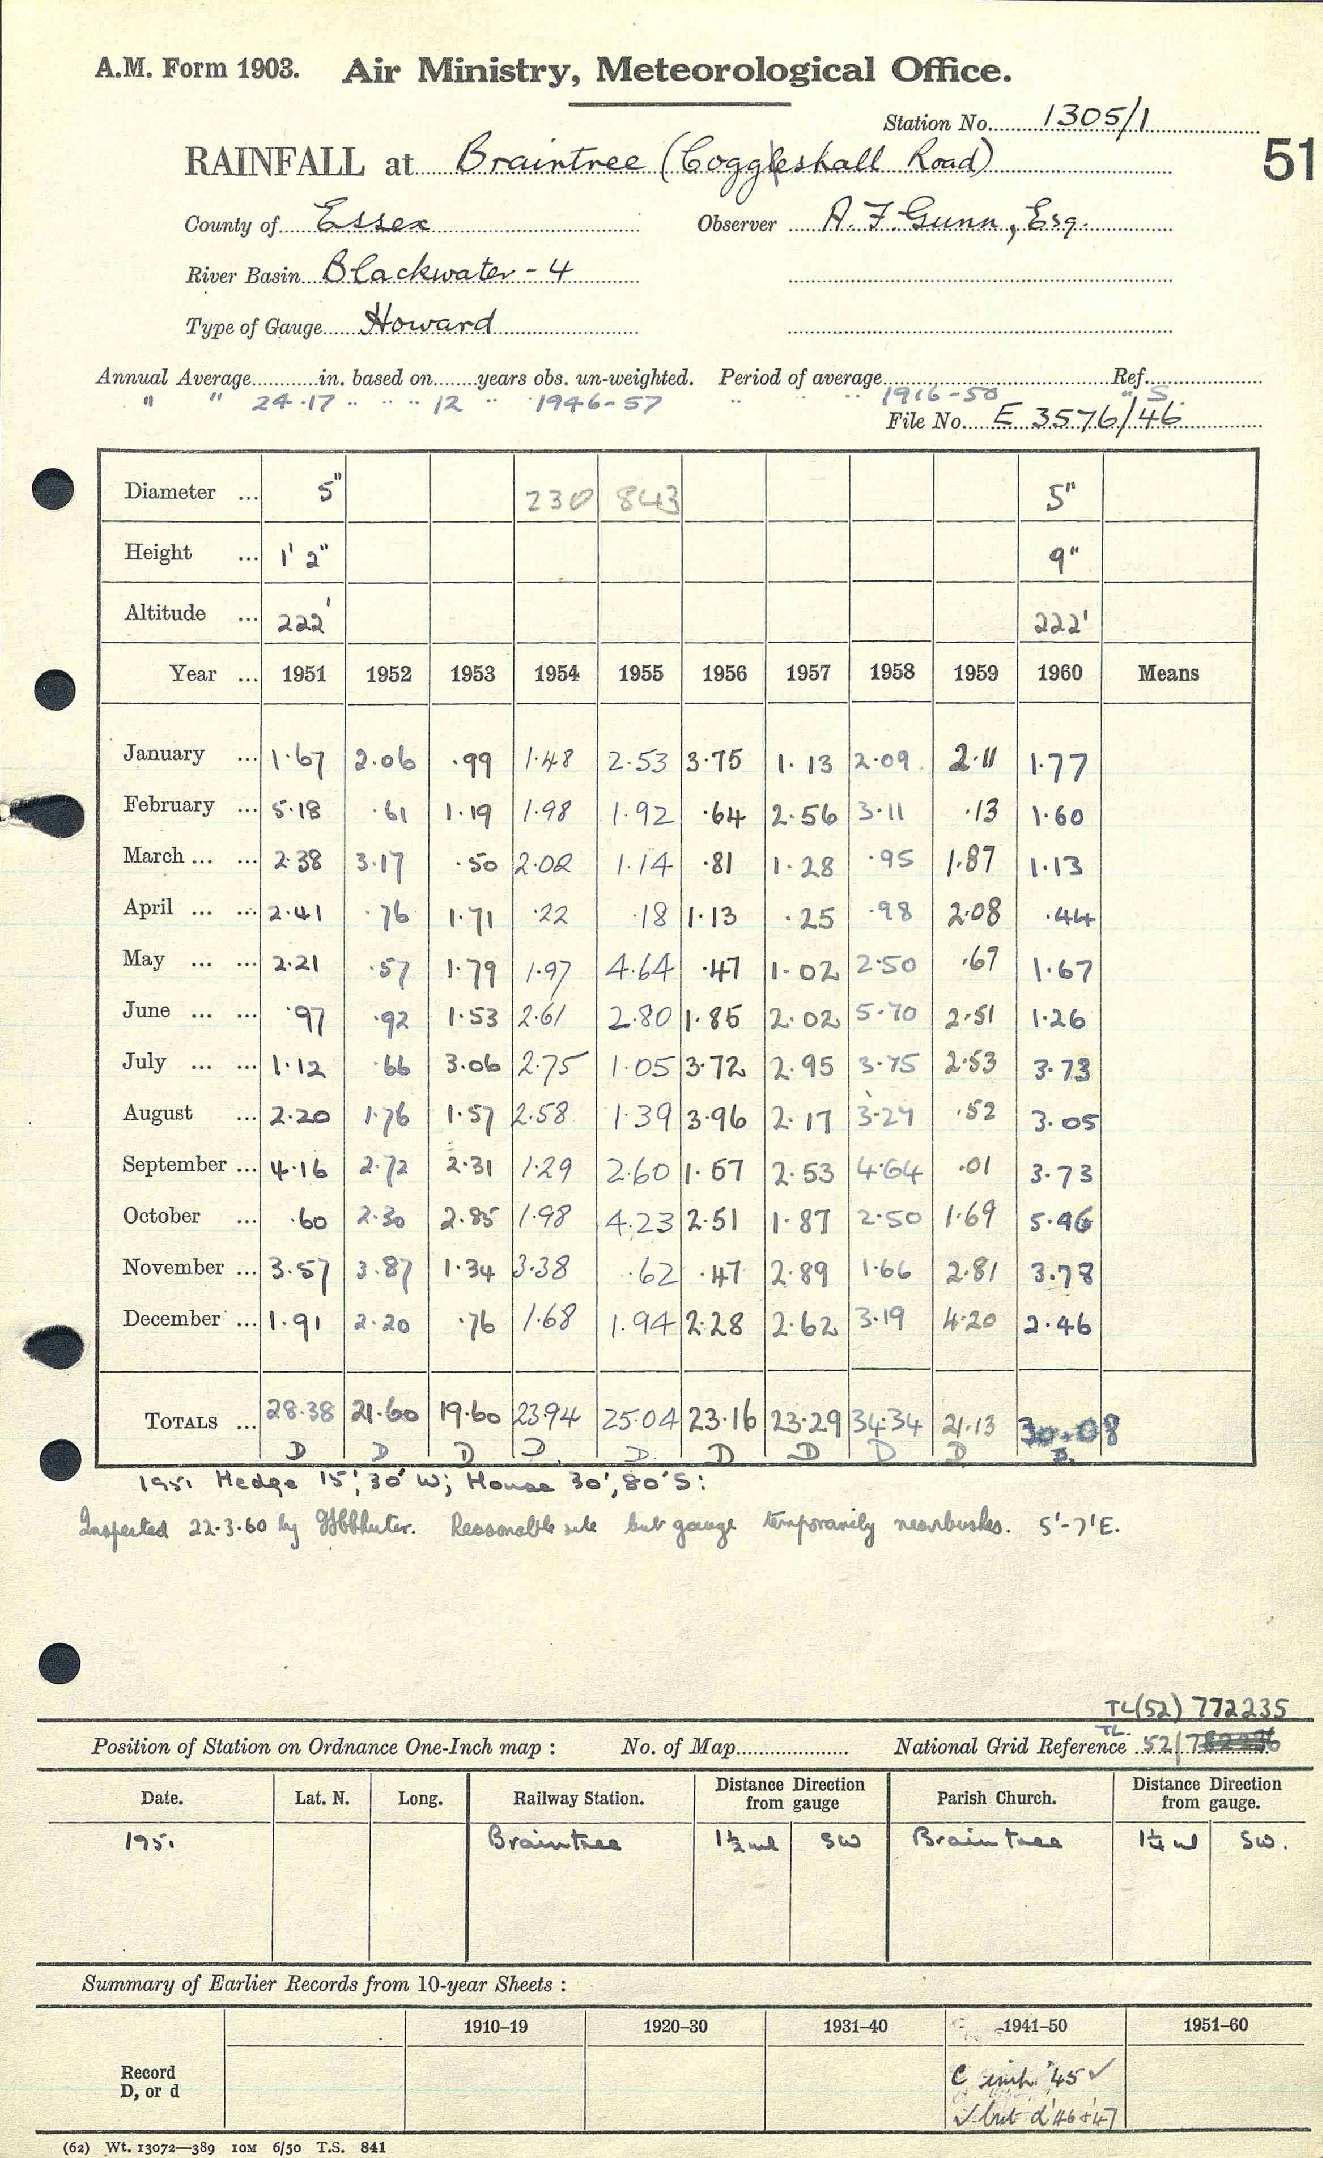 A.M. Form 1903. Air Ministry, Meteorological Office.
Station No. 1305/1
RAINFALL at Braintree (Coggleshall Road)
51
County of Essex Observer A. F. Gunn, Esq.
River Basin Blackwater - 4
Type of Gauge Howard
Annual Average in. based on years obs. un-weighted. Period of average Ref.
" " 24.17 " " " 12 " 1946-57 " " " 1916-50 " S.
File No. E 3576/46
Diameter ... 5" 230 843 5"
Height ... 1' 2" 9"
Altitude ... 222' 222'
Year ... 1951 1952 1953 1954 1955 1956 1957 1958 1959 1960 Means
January ... 1.67 2.06 .99 1.48 2.53 3.75 1.13 2.09 2.11 1.77
February ... 5.18 .61 1.19 1.98 1.92 .64 2.56 3.11 .13 1.60
March ... ... 2.38 3.17 .50 2.02 1.14 .81 1.28 .95 1.87 1.13
April ... ... 2.41 .76 1.71 .22 .18 1.13 .25 .98 2.08 .44
May ... ... 2.21 .57 1.79 1.97 4.64 .47 1.02 2.50 .67 1.67
June ... ... .97 .92 1.53 2.61 2.80 1.85 2.02 5.70 2.51 1.26
July ... ... 1.12 .66 3.06 2.75 1.05 3.72 2.95 3.75 2.53 3.73
August ... 2.20 1.76 1.57 2.58 1.39 3.96 2.17 3.27 .52 3.05
September ... 4.16 2.72 2.31 1.29 2.60 1.57 2.53 4.64 .01 3.73
October ... .60 2.30 2.85 1.98 4.23 2.51 1.87 2.50 1.69 5.46
November ... 3.57 3.87 1.34 3.38 .62 .47 2.89 1.66 2.81 3.78
December ... 1.91 2.20 .76 1.68 1.94 2.28 2.62 3.19 4.20 2.46
TOTALS ... 28.38 21.60 19.60 23.94 25.04 23.16 23.29 34.34 21.13 30.08
D D D D D D D D D D.
1951 Hedge 15', 30' W; House 30', 80' S:
Inspected 22.3.60 by Reasonable site but gauge temporarily near bushes. 5'-7' E.
TL(52) 772235
Position of Station on Ordnance One-Inch map : No. of Map National Grid Reference TL. 52/
Date. Lat. N. Long. Railway Station. Distance Direction from gauge Parish Church. Distance Direction from gauge.
1951 Braintree 1½ ml SW Braintree 1¼ ml SW.
Summary of Earlier Records from 10-year Sheets :
1910-19 1920-30 1931-40 1941-50 1951-60
Record
D, or d
C '45 ✓
✓ but d '46 + '47
(62) Wt. 13072—389 10M 6/50 T.S. 841